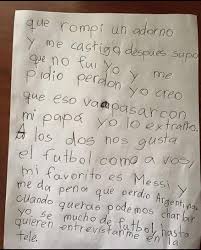 que rompi un adorno
y me castigo despues supo
que no fui yo y me
pidio perdon yo creo
que eso va pasar con
mi papá yo lo extraño
A los dos nos gusta
el futbol como a vos
mi favorito es Messi y
me da pena que perdio Argentina
cuando queras podemos charlar
yo se mucho de futbol hasta
quieren entrevistarme en la
tele.